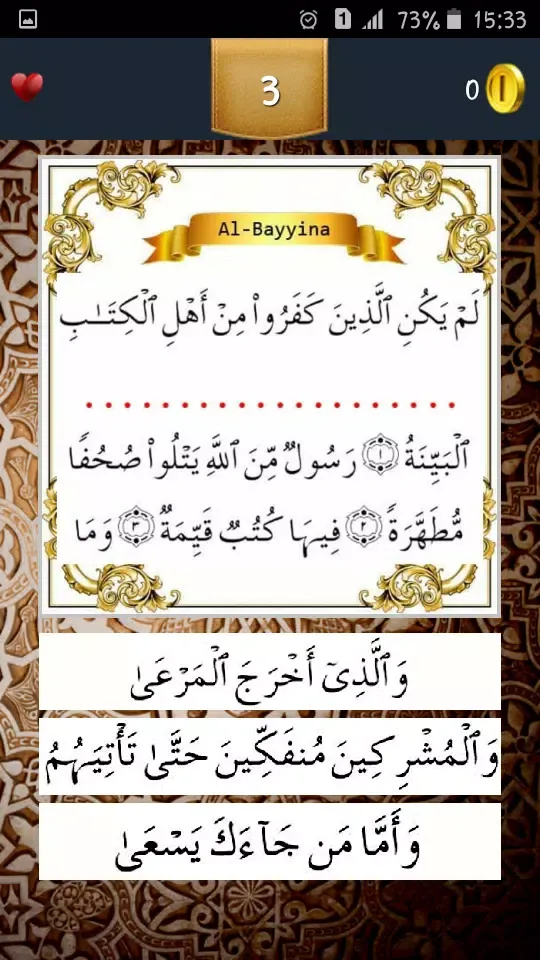 1 73% 15:33
3
0
Al-Bayyina
لَمْ يَكُنِ ٱلَّذِينَ كَفَرُوا۟ مِنْ أَهْلِ ٱلْكِتَـٰبِ
....................
ٱلْبَيِّنَةُ ۝١ رَسُولٌ مِّنَ ٱللَّهِ يَتْلُوا۟ صُحُفًا
مُّطَهَّرَةً ۝٢ فِيهَا كُتُبٌ قَيِّمَةٌ ۝٣ وَمَا
وَٱلَّذِىٓ أَخْرَجَ ٱلْمَرْعَىٰ
وَٱلْمُشْرِكِينَ مُنفَكِّينَ حَتَّىٰ تَأْتِيَهُمُ
وَأَمَّا مَن جَآءَكَ يَسْعَىٰ